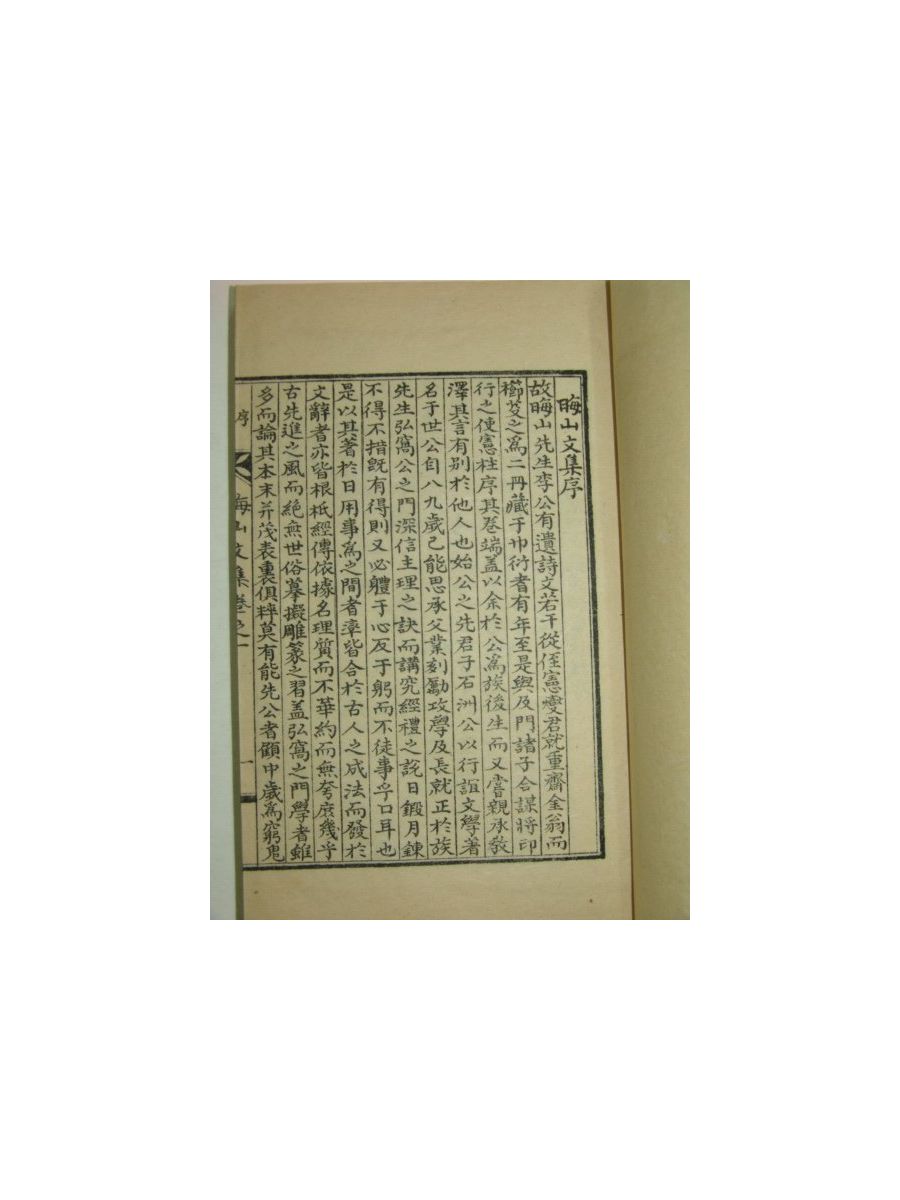 晦山文集序
故晦山先生李公有遺詩文若干從侄憲燮君就重齋金翁而
櫛芟之爲二冊藏于巾衍者有年至是與及門諸子合謀將印
行之使憲柱序其卷端盖以余於公爲族後生而又嘗親承敎
澤其言有別於他人也始公之先君子石洲公以行誼文學著
名于世公自八九歲已能思承父業刻勵攻學及長就正於族
先生弘窩公之門深信主理之訣而講究經禮之說日鍛月鍊
不得不措旣有得則又必軆于心反于躬而不徒事乎口耳也
是以其著於日用事爲之間者章皆合於古人之成法而發於
文辭者亦皆根柢經傳依據名理質而不華約而無夸庶幾乎
古先進之風而絶無世俗摹擬雕篆之習盖弘窩之門學者雖
多而論其本末幷茂表裏俱粹莫有能先公者顧中歲爲窮鬼
序
晦山文集卷之一
一